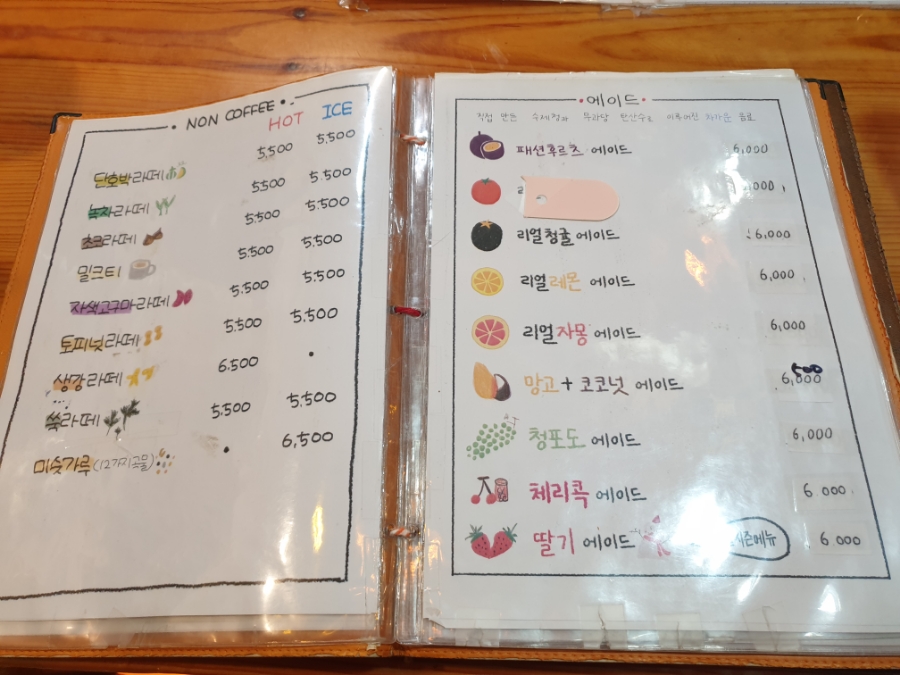 • NON COFFEE •
HOT ICE
단호박라떼 5,500 5,500
녹차라떼 5,500 5,500
초코라떼 5,500 5,500
밀크티 5,500 5,500
자색고구마라떼 5,500 5,500
토피넛라떼 5,500 5,500
생강라떼 6,500 •
쑥라떼 5,500 5,500
미숫가루(12가지곡물) • 6,500
•에이드•
직접 만든 수제청과 탄산수로 이루어진 차가운 음료
패션후르츠 에이드 6,000
,000
리얼청귤에이드 6,000
리얼레몬 에이드 6,000
리얼자몽 에이드 6,000
망고+코코넛 에이드 6,500
청포도 에이드 6,000
체리콕 에이드 6,000
딸기 에이드 시즌메뉴 6,000